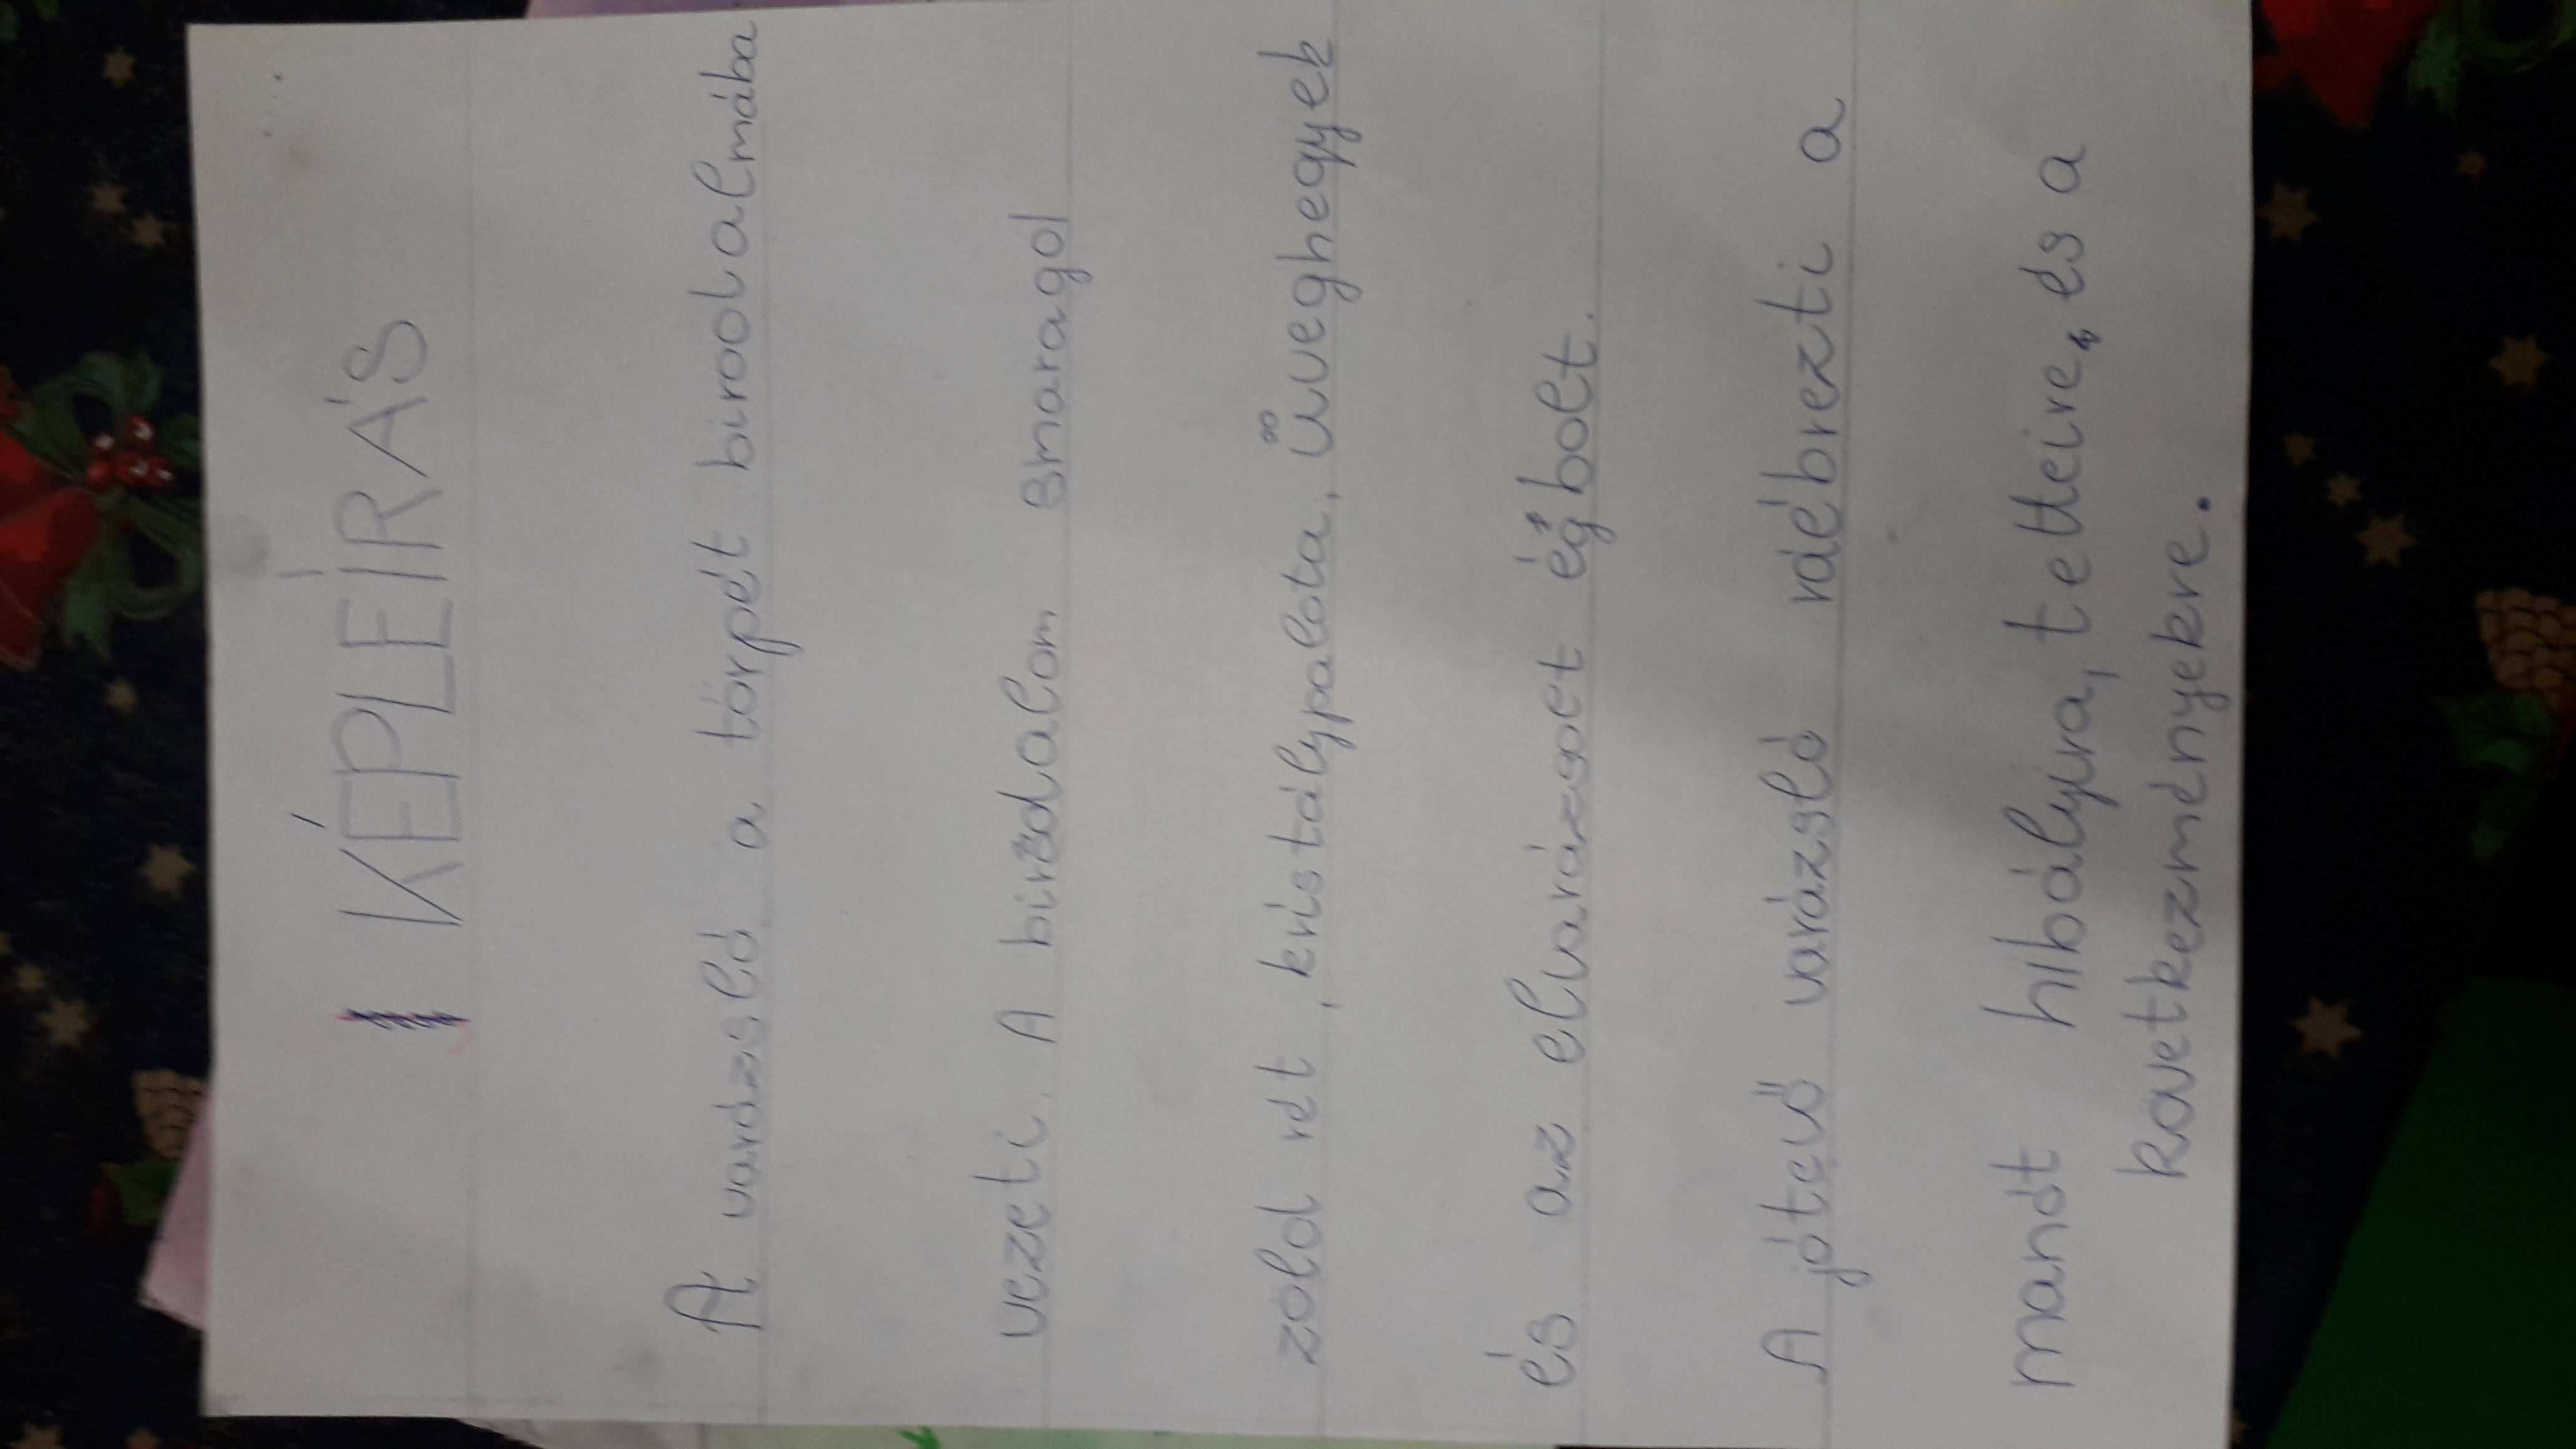 KÉPLEÍRÁS
A varázsló a törpét birodalmába
vezeti. A birodalom smaragd
zöld rét, kristálypalota, üveghegyek
és az elvarázsolt égbolt.
A jótevő varázsló rdébrezti a
manót hibályira, tetteire, és a
következményekre.